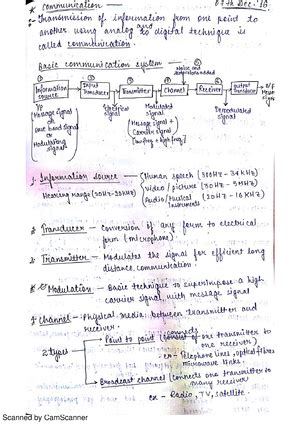 * Communication —
07th Dec.'20
→ Transmission of information from one point to
another using analog and to digital technique is
called communication.
Basic communication system —
Noise and
distortions added
① ② ③ ④ ⑤ ⑥
Information source → Input Transducer → Transmitter → Channel → Receiver → Output Transducer → O/P signal
I/P
(Message signal
or
base band signal
or
Modulating
signal)
Electrical
signal
Modulated
signal
[Message signal +
Carrier signal]
[Low freq + high freq]
Demodulated
signal
1. Information source — Human speech (300HZ - 34KHZ)
Hearing range (20HZ-20KHZ)
Video / picture (30HZ - 5MHZ)
Audio/Musical
Instruments (20HZ - 16KHZ)
2. Transducer — Conversion of any form to electrical
form (microphone)
3. Transmitter — Modulates the signal for efficient long
distance communication.
* Modulation — Basic technique to superimpose a high
carrier signal with message signal
4. Channel — Physical media between transmitter and
receiver.
2 types
Point to point (connects one transmitter to
one receiver)
ex - Telephone lines, optical fibres
microwave links.
Broadcast channel (connects one transmitter to
many receiver)
ex - Radio, TV, satellite.
Scanned by CamScanner